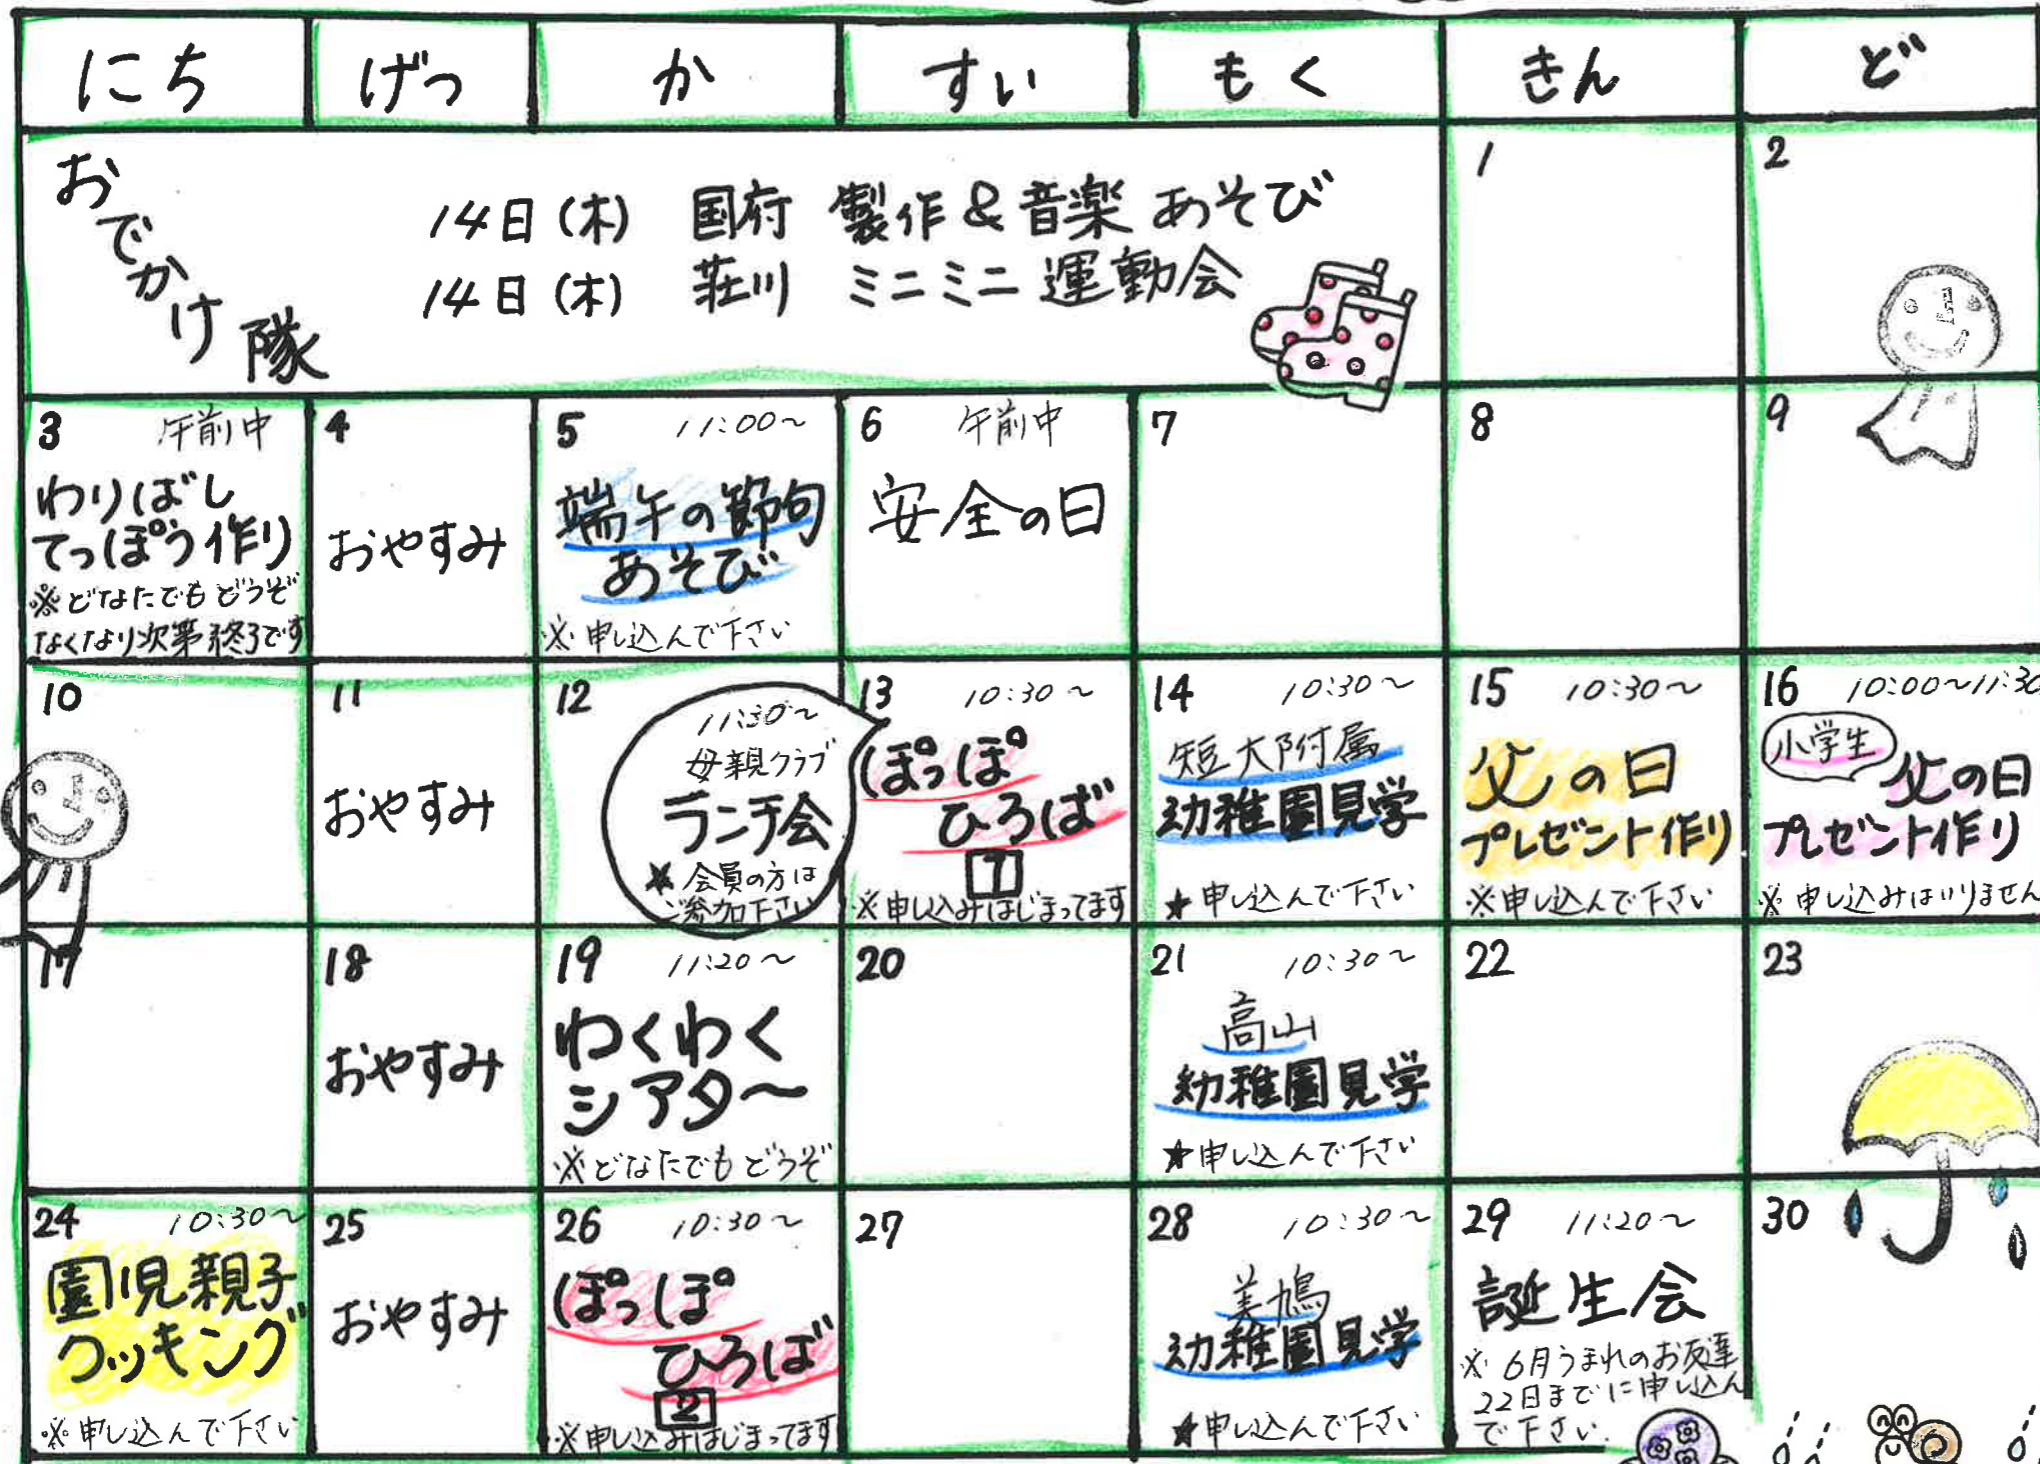 にち
げつ
か
すい
もく
きん
ど
おでかけ隊
14日(木) 国府 製作&音楽 あそび
14日(木) 荘川 ミニミニ運動会
1
2
3 午前中
わりばし
てっぽう作り
※どなたでもどうぞ
なくなり次第終了です
4
おやすみ
5 11:00~
端午の節句
あそび
※申し込んで下さい
6 午前中
安全の日
7
8
9
10
11
おやすみ
12
11:30~
母親クラブ
ランチ会
★会員の方は
ご参加下さい
13 10:30~
ぽっぽ
ひろば
1
※申し込みはじまってます
14 10:30~
短大附属
幼稚園見学
★申し込んで下さい
15 10:30~
父の日
プレゼント作り
※申し込んで下さい
16 10:00~11:30
小学生
父の日
プレゼント作り
※申し込みはいりません
17
18
おやすみ
19 11:20~
わくわく
シアタ~
※どなたでもどうぞ
20
21 10:30~
高山
幼稚園見学
★申し込んで下さい
22
23
24 10:30~
園児親子
クッキング
※申し込んで下さい
25
おやすみ
26 10:30~
ぽっぽ
ひろば
2
※申し込みはじまってます
27
28 10:30~
美鳩
幼稚園見学
★申し込んで下さい
29 11:20~
誕生会
※6月うまれのお友達
22日までに申し込ん
で下さい.
30